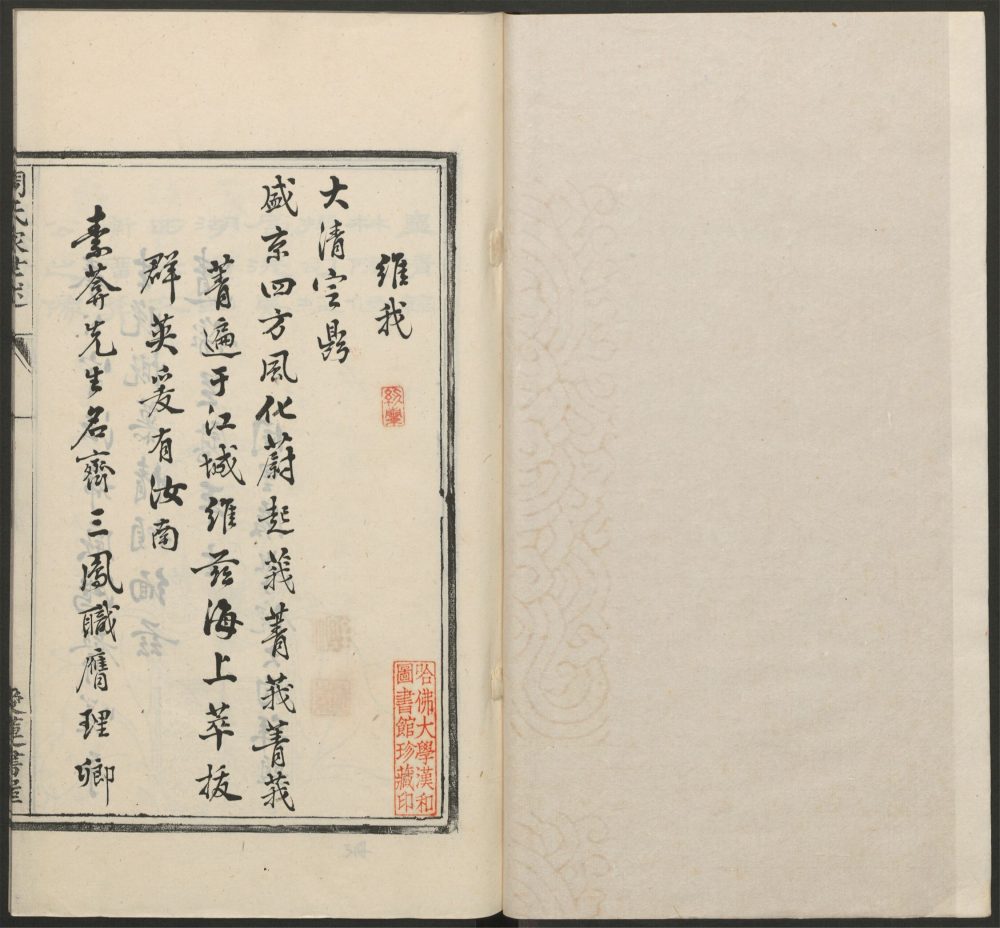 維我
大清定鼎
盛京四方風化蔚起莪菁莪菁莪
菁遍于江城維茲海上萃拔
群英爰有汝南
素菴先生名齊三鳳職膺理卿
哈佛大學漢和
圖書館珍藏印
周氏家世述
雙蓮書屋